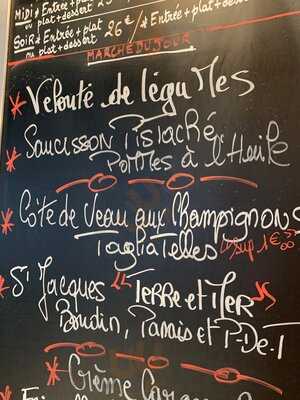 MiDi * Entrée + plat
ou plat + dessert
SoiR * Entrée + plat 26€ * Entrée + plat + dessert
ou plat + dessert
MARCHÉ DU JOUR
* Velouté de légumes
* Saucisson Pistaché
Pommes à l'Huile
* Côte de Veau aux Champignons
Tagliatelles sup 1€50
* St Jacques "Terre et Mer"
Boudin, Panais et P-De-T
* Crème